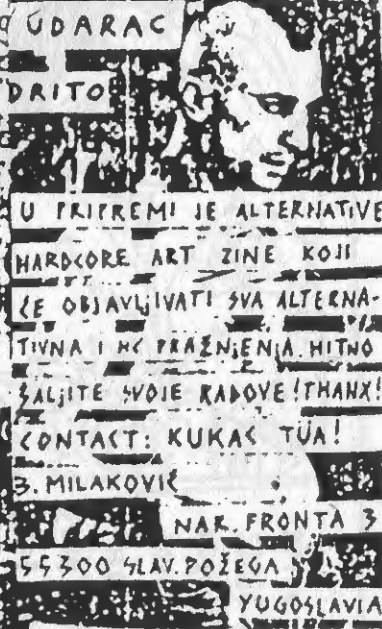 UDARAC
DRITO
U PRIPREMI JE ALTERNATIVE
HARDCORE ART ZINE KOJI
ĆE OBJAVLJIVATI SVA ALTERNA-
TIVNA I HC PRAŽNJENJA. HITNO
ŠALJITE SVOJE RADOVE! THANX!
CONTACT: KUKAC TÜA!
B. MILAKOVIĆ
NAR. FRONTA 3
55300 SLAV. POŽEGA
YUGOSLAVIA